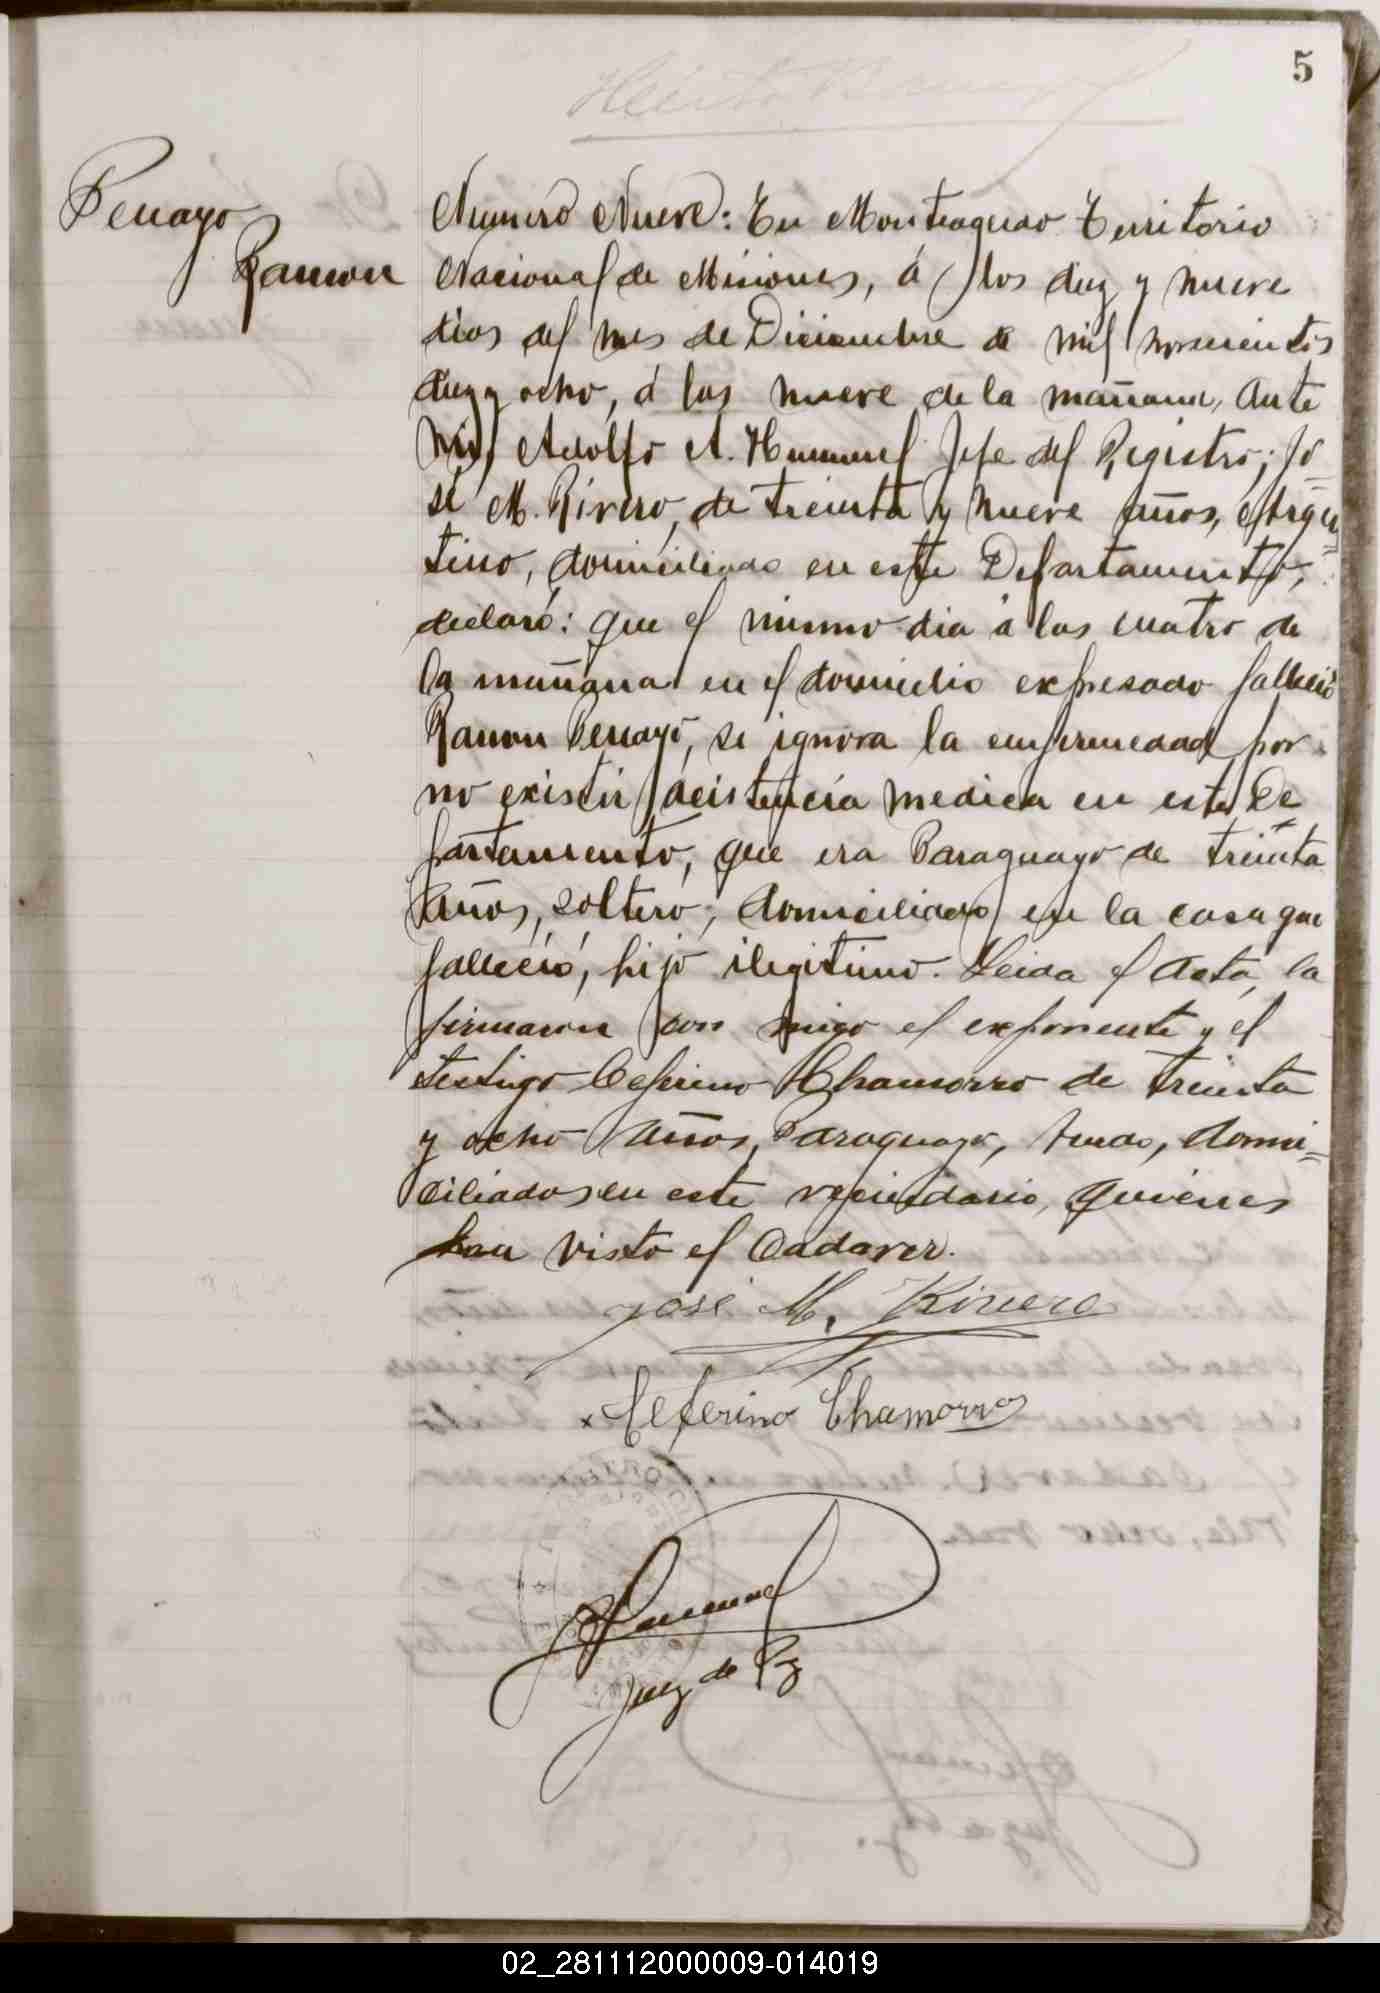 5
Penayo
Ramon
Numero Nueve: En Monteagudo Territorio
Nacional de Misiones, á los diez y nueve
dias del mes de Diciembre de mil novecientos
diez y ocho, á las nueve de la mañana, Ante
mi, Adolfo A. Hummel Jefe del Registro; Jo
sé M. Rivero, de treinta y nueve años, Argen
tino, domiciliado en este Departamento,
declaró: que el mismo dia á las cuatro de
la mañana en el domicilio expresado falleció
Ramon Penayo, se ignora la enfermedad por
no existir acistencia medica en este De
partamento, que era Paraguayo de treinta
años, soltero, domiciliado en la casa que
falleció, hijo ilegitimo. Leida el Acta, la
firmaron con migo el exponente y el
testigo Ceferino Chamorro de treinta
y ocho años, Paraguayo, domi-
ciliados en este vecindario, quienes
han visto el Cadaver.
José M. Rivero
Ceferino Chamorro
Juez de Paz
02_281112000009-014019